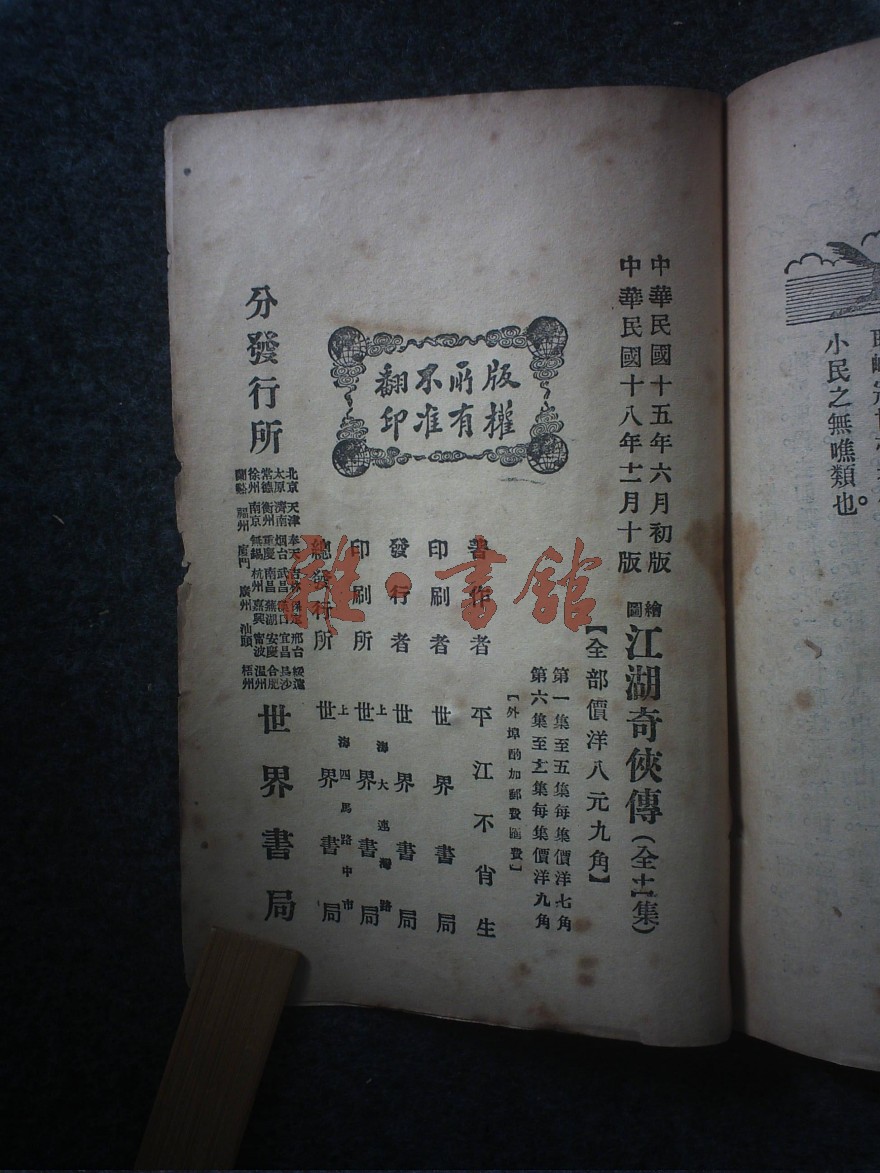 小民之無噍類也。
中華民國十五年六月初版
中華民國十八年十一月十版
繪圖江湖奇俠傳(全十一集)
【全部價洋八元九角】
第一集至五集每集價洋七角
第六集至十一集每集價洋九角
【外埠酌加郵費匯費】
版權所有
不准翻印
著作者 平江不肖生
印刷者 世界書局
發行者 世界書局
上海大連灣路
印刷所 世界書局
上海四馬路中市
總發行所 世界書局
分發行所
北京 天津 奉天 吉林 保定 邢台 綏遠
太原 濟南 烟台 武昌 漢口 宜昌 長沙
常德 衡州 重慶 南昌 蕪湖 安慶 合肥
徐州 南京 無錫 杭州 嘉興 甯波 溫州
蘭谿 福州 廈門 廣州 汕頭 梧州
世界書局
雜·書館